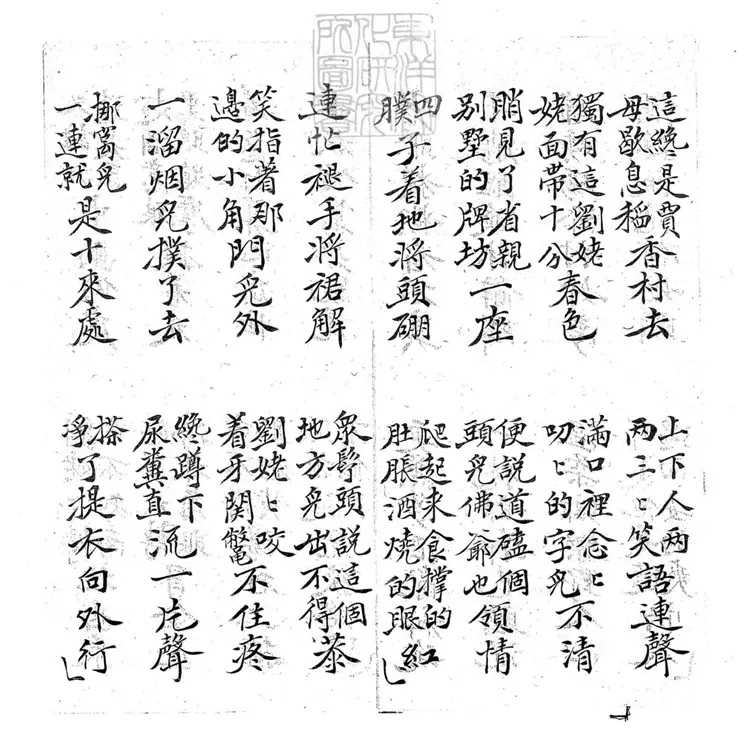 東洋文化研究所圖書
這纔是賈母歇息稻香村去
上下人两两三ヒ笑語連聲
獨有這劉姥姥面帶十分春色
滿口裡念ヒ叨ヒ的字兒不清
見了省親別墅的牌坊一座
便說道磕個頭兒佛爺也領情
四子着地將頭硼
爬起来食撑的肚脹酒燒的眼紅
連忙褪手將裙解
眾頭說這個地方兒出不得恭
笑指著那邊的小角門兒外
劉姥ヒ咬着牙関鱉不住疼
一溜烟兒撲了去
纔蹲下尿糞直流一片聲
挪窩兒一連就是十來處
搽淨了提衣向外行